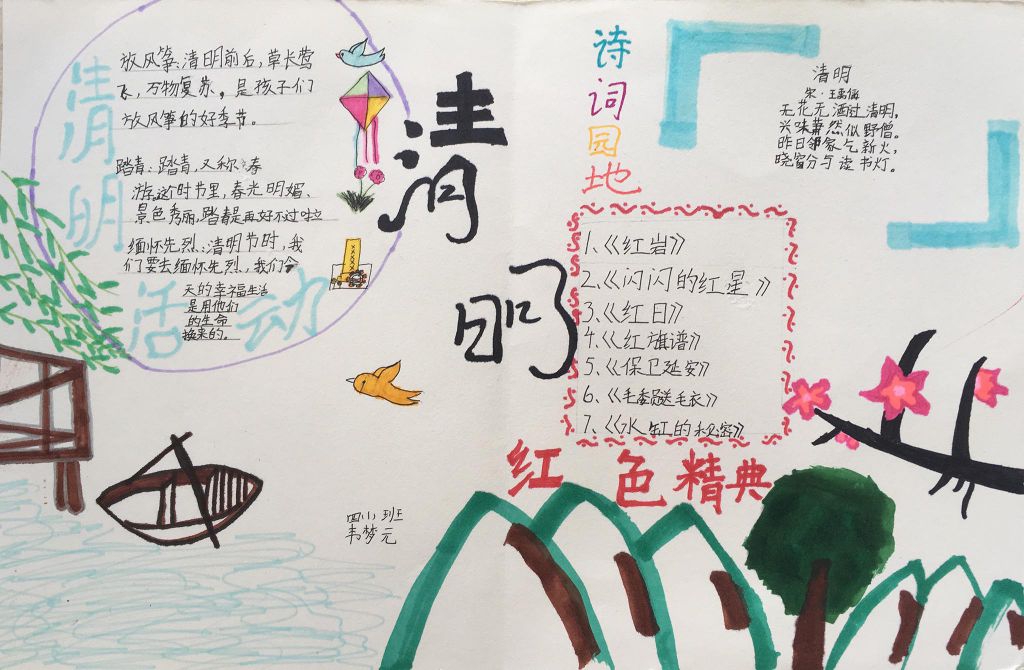 清明
活动
放风筝:清明前后,草长莺
飞,万物复苏。是孩子们
放风筝的好季节。
踏青:踏青,又称:春
游,这个时节里,春光明媚、
景色秀丽,踏青是再好不过啦
缅怀先烈:清明节时,我
们要去缅怀先烈,我们今
天的幸福生活
是用他们
的生命
换来的。
清明
四小班
韦梦元
诗词园地
清明
宋·王禹偁
无花无酒过清明,
兴味萧然似野僧。
昨日邻家乞新火,
晓窗分与读书灯。
1、《红岩》
2、《闪闪的红星》
3、《红日》
4、《红旗谱》
5、《保卫延安》
6、《毛委员送毛衣》
7、《水缸的秘密》
红色精典